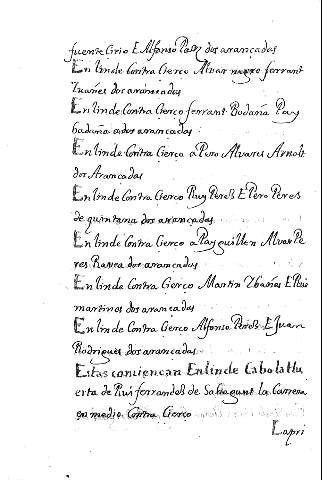 fuente Grio E Alfonso Paez dos arançadas
En linde Contra Cierco Alvar negro ferrant
Yuañes dos arançadas
En linde Contra Cierco ferrant Badaña Pay
badaña dos arançadas
En linde Contra Cierco a Pero Alvares Arnolt
dos Arançadas
En linde Contra Cierco Ruy Peres E Pero Peres
de quintana dos arançadas
En linde Contra Cierco a Pay guillen Alvar Pe
res Ravea dos arançadas
En linde Contra Cierco Martin Ybañes E Ruy
martines dos arançadas
En linde Contra Cierco Alfonso Peres E Juan
Rodrigues dos arançadas
Estas comiençan En linde Cabo la Hu
erta de Rui ferrandes de Sahagunt la Carrera
en medio Contra Cierco
Lapri